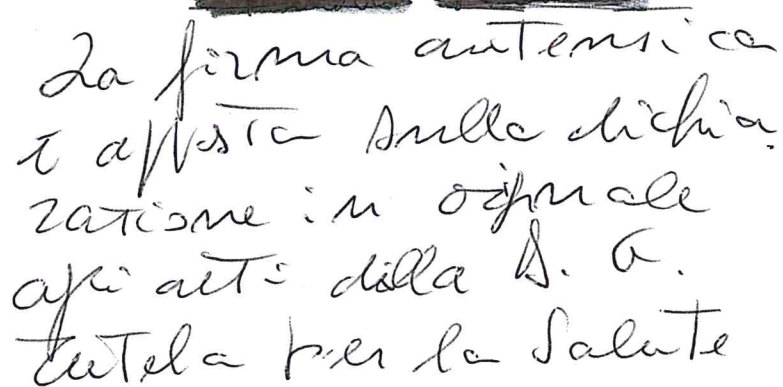 La firma autentica
è apposta sulla dichia
razione in originale
agli atti della D. G.
tutela per la Salute